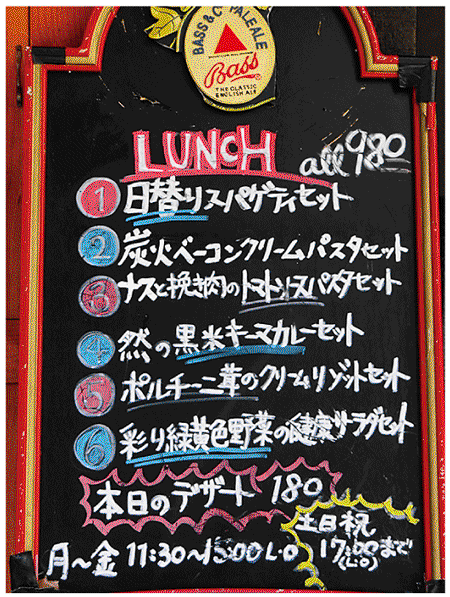 BASS & CO'S PALE ALE
Bass
THE CLASSIC
ENGLISH ALE
LUNCH all 980
1 日替りスパゲティセット
2 炭火ベーコンクリームパスタセット
3 ナスと挽き肉のトマトソースパスタセット
4 然の黒米キーマカレーセット
5 ポルチーニ茸のクリームリゾットセット
6 彩り緑黄色野菜の健康サラダセット
本日のデザート 180
月~金 11:30~15:00 L.O
土日祝
17:00まで
(L.O)